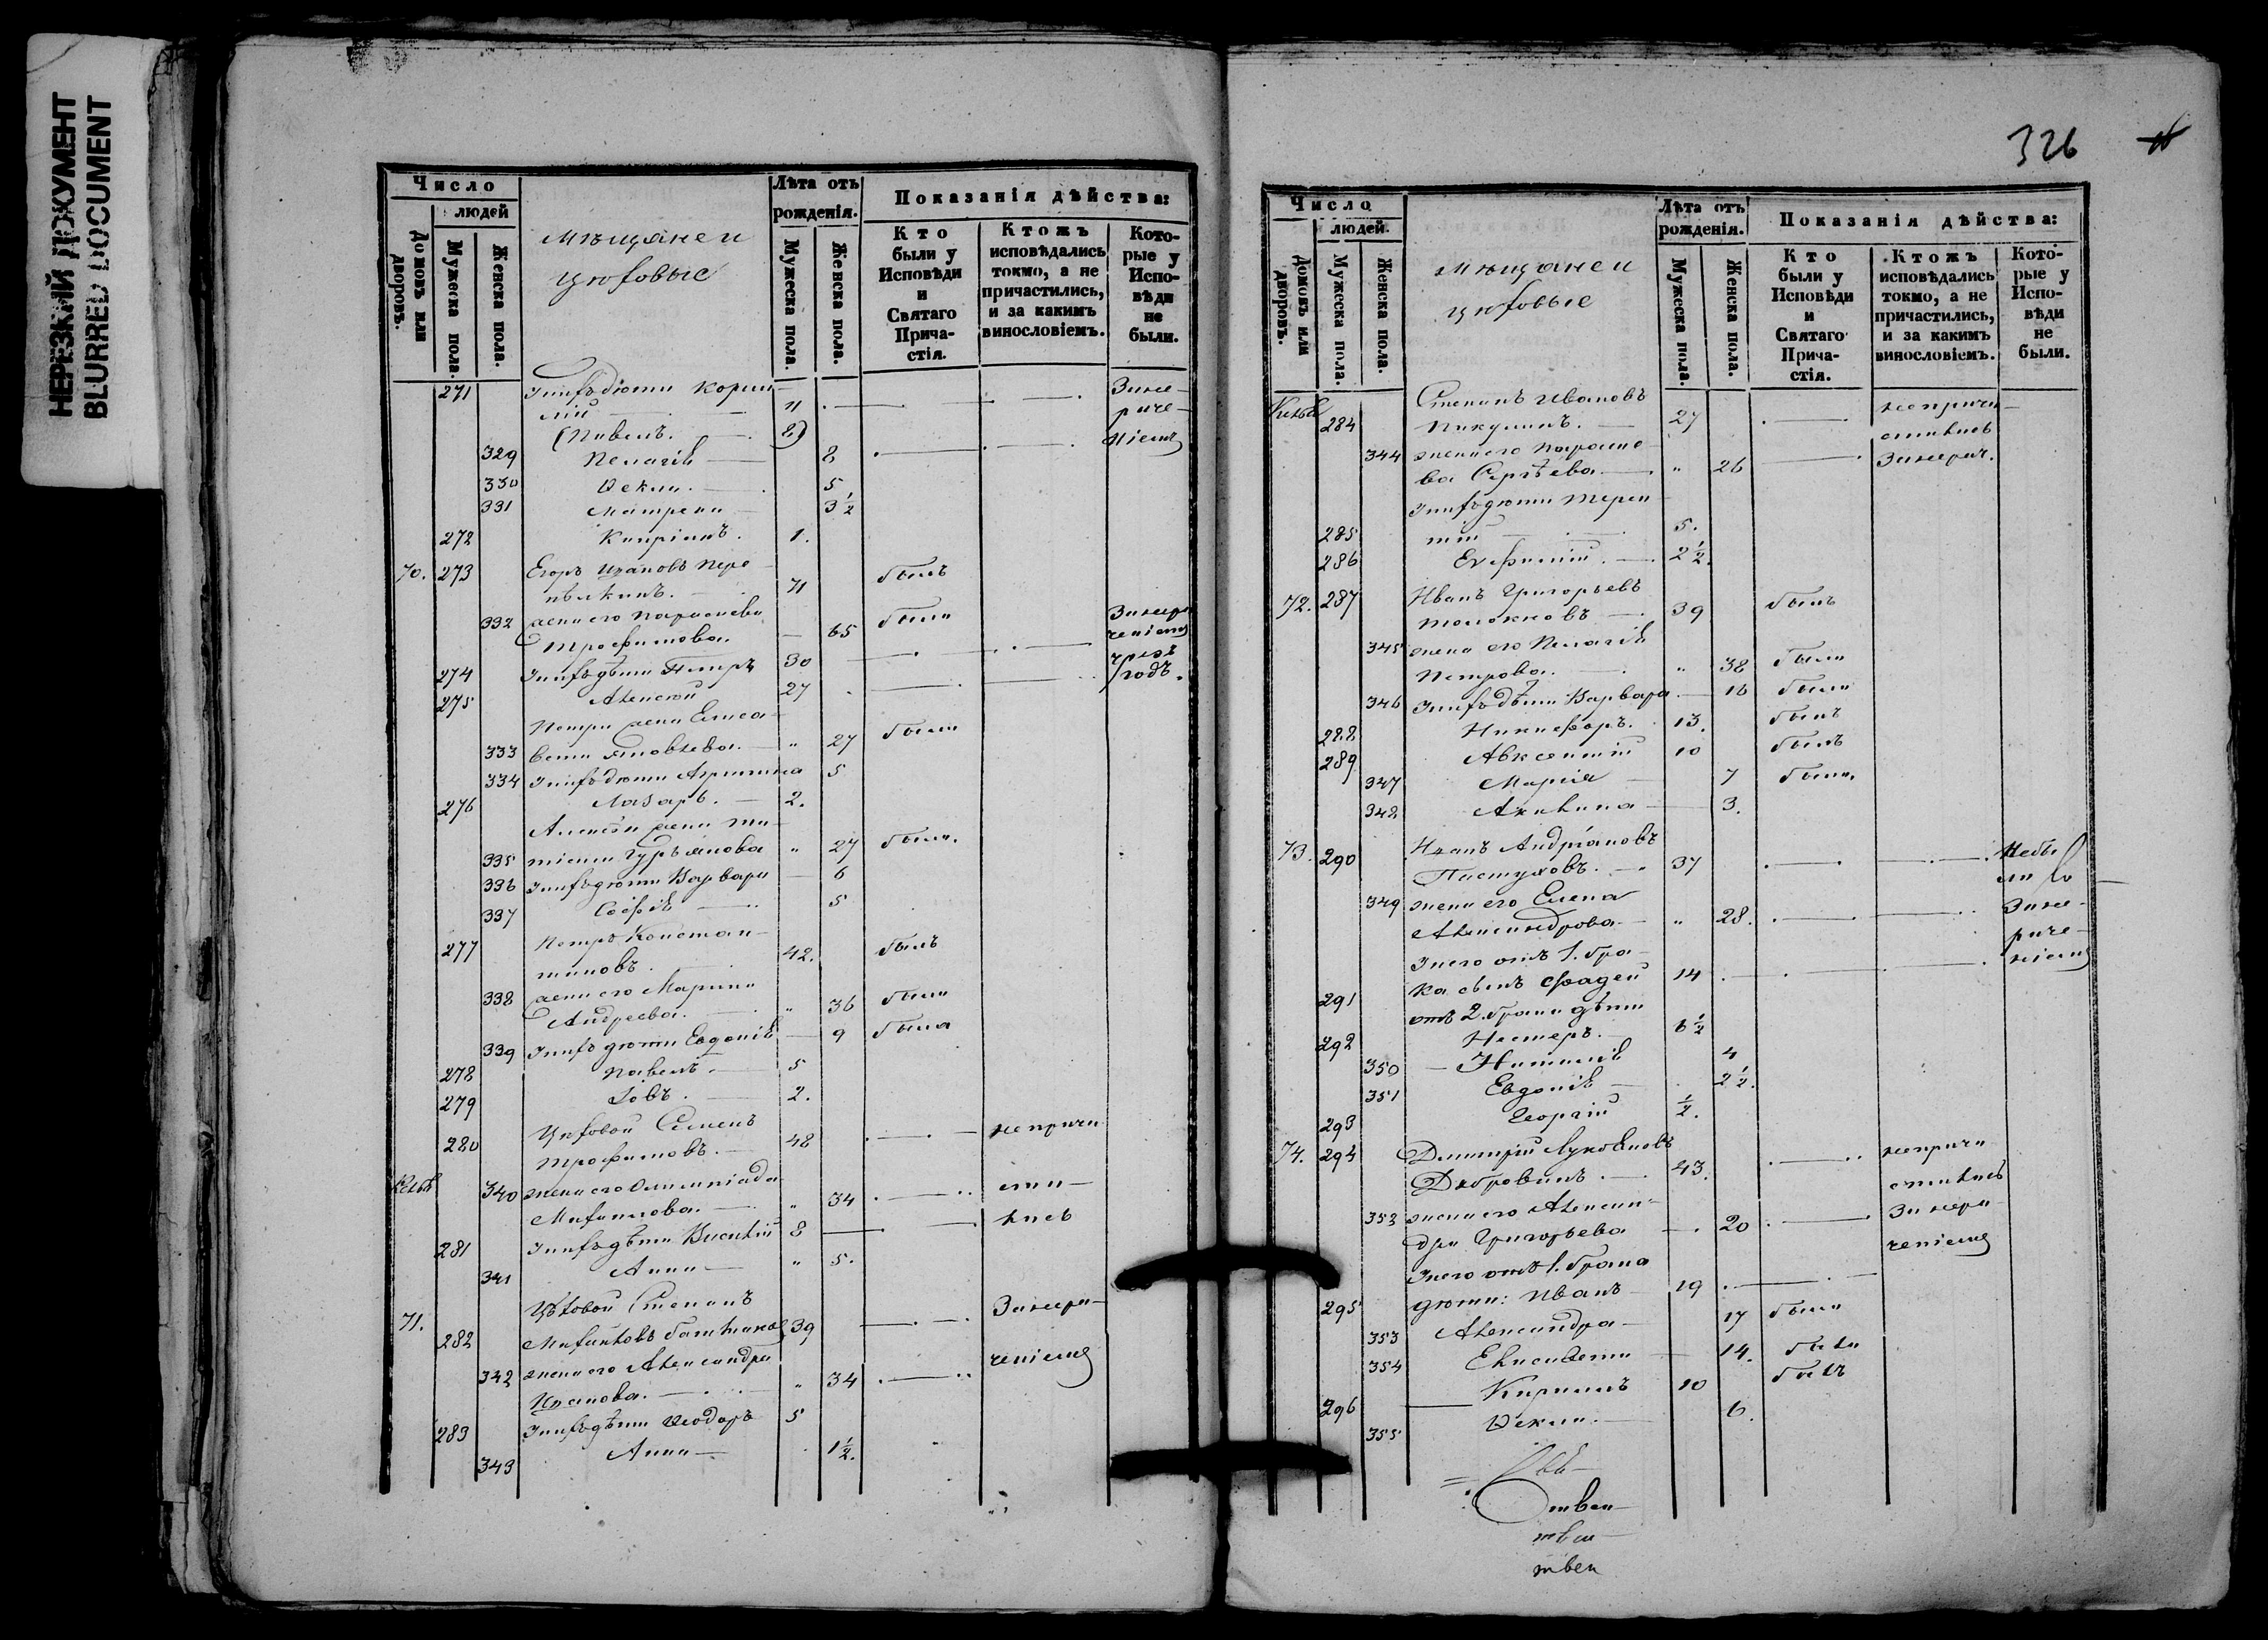 НЕРЕЗКИЙ ДОКУМЕНТ
BLURRED DOCUMENT
Число
людей
Домовъ или дворовъ.
Мужеска пола.
Женска пола.
Мѣщане и
цѣховые
Лѣта отъ рожденія.
Мужеска пола.
Женска пола.
Показанія дѣйства:
Кто были у Исповѣди и Святаго Прича-стія.
Ктожъ исповѣдались токмо, а не причастились, и за какимъ винословіемъ.
Кото-рые у Испо-вѣди не были.
271 Ихъ дѣти Корни-
лій 11 За не-
(Павелъ. 8) раче-
329 Пелагія 8 ніемъ
330 Ѳекла. 5
331 Матрена 3 1/2
272 Кипріанъ. 1.
70. 273 Егоръ Ивановъ Пере-
71 былъ
332 жена его Параскева
Трофимова. 65 была За нера
ченіемъ
274 Ихъ дѣти Петръ 30 чрезъ
годъ.
275 Алексѣй 27
Петра жена Елиса-
333 вета Яковлева. " 27 была
334 Ихъ дѣти Агрипина 5
276 Лазарь. 2.
Алексѣя жена Та-
335 тіана Гурьянова " 27 была.
336 Ихъ дѣти Варвара 6
337 Софія 5
277 Петръ Констан-
тиновъ. 42. былъ
338 жена его Марина
Андреева. " 36 была
339 Ихъ дѣти Евдокія 9 была
278 Павелъ. 5
279 Іовъ. 2.
280 Цѣховой Семенъ
Трофимовъ. 48 не прича
340 жена его Олимпіада
Михайлова. " 34 сти-
281 Ихъ дѣти Василій 8 лись
341 Анна " 5.
71. Цѣховой Степанъ
282 Михайловъ 39 За нера-
342 жена его Александра ченіемъ
Иванова. " 34
283 Ихъ дѣти Ѳеодоръ 5
343 Анна 1 1/2.
326
Число
людей.
Домовъ или дворовъ.
Мужеска пола.
Женска пола.
Мѣщане и
цѣховые
Лѣта отъ рожденія.
Мужеска пола.
Женска пола.
Показанія дѣйства:
Кто были у Исповѣди и Святаго Прича-стія.
Ктожъ исповѣдались токмо, а не причастились, и за какимъ винословіемъ.
Кото-рые у Испо-вѣди не были.
Степанъ Ивановъ
284 Никулинъ. 27 не прича-
стились
344 жена его Параске
ва Сергѣева " 26 За нерач.
Ихъ дѣти Терен
285 тій 5.
286 Евфимій. 2 1/2.
72. 287 Иванъ Григорьевъ
Толокновъ 39 былъ
345 жена его Пелагія
Петрова. " 38 была
346 Ихъ дѣти Варвара 16 была
288 Никифоръ. 13. былъ
289 Авксентій 10 былъ
347 Марія 7 была.
348 Акилина 3.
73. 290 Иванъ Андріановъ
Пастуховъ. 37 Небы
ли
349 жена его Елена
Александрова " 28. За не-
У него отъ 1. бра- раче-
291 ка сынъ Фадей 14 ніемъ
отъ 2. брака дѣти
292 Нестеръ. 6 1/2
350 Наталія 4
351 Евдокія 2 1/2.
293 Георгій 1/2.
74. 294 Димитрій Лукояновъ
Дубровинъ. 43. не прича
стились
352 жена его Алексан-
дра Григорьева 20 За нера
ченіемъ
У него отъ 1. брака
295 дѣти: Иванъ 19
353 Александра 17 была
354 Елисавета 14. была
296 Кириллъ 10 былъ
355 Ѳекла. 6.